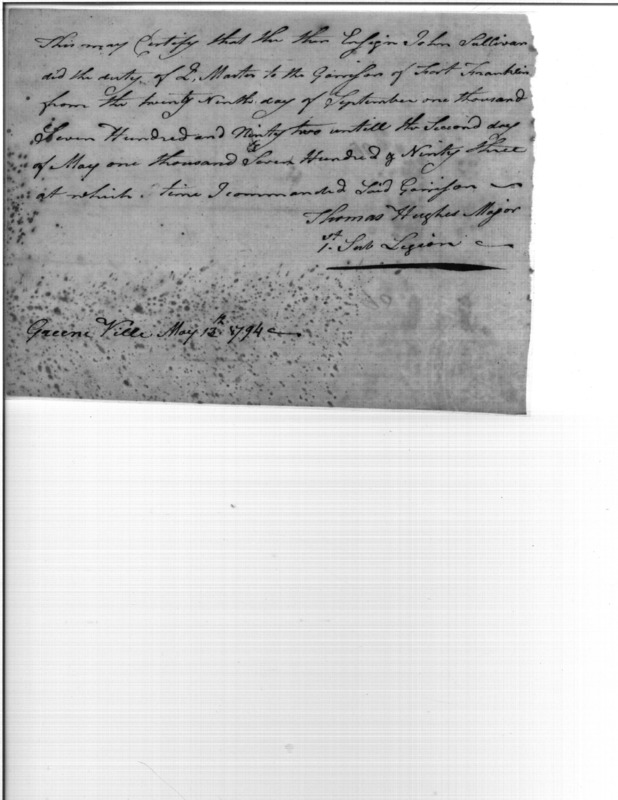 This may Certify that the then Ensign John Sullivan
did the duty of Q. Master to the Garrison of Fort Franklin
from the twenty Ninth day of September one thousand
Seven Hundred and Ninety two untill the Second day
of May one thousand Seven Hundred & Ninty three
at which time I commanded Said Garrison
Thomas Hughes Major
1st Sub Legion
Greene Ville May 12th 1794